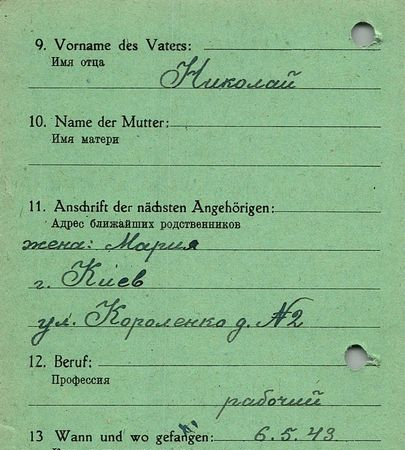 9. Vorname des Vaters:
Имя отца
Николай
10. Name der Mutter:
Имя матери
11. Anschrift der nächsten Angehörigen:
Адрес ближайших родственников
жена: Мария
г. Киев
ул. Короленко д. №2
12. Beruf:
Профессия
рабочий
13 Wann und wo gefangen: 6.5.43